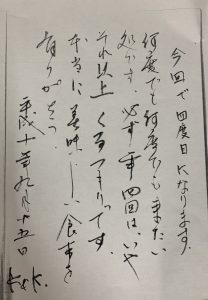 今回で四度目になります。
何度でも何度でも来たい
処です。必ず年四回はいや
それ以上くるつもりです。
本当に美味しい食事を
有りがとう
平成十年九月十五日
K&K.